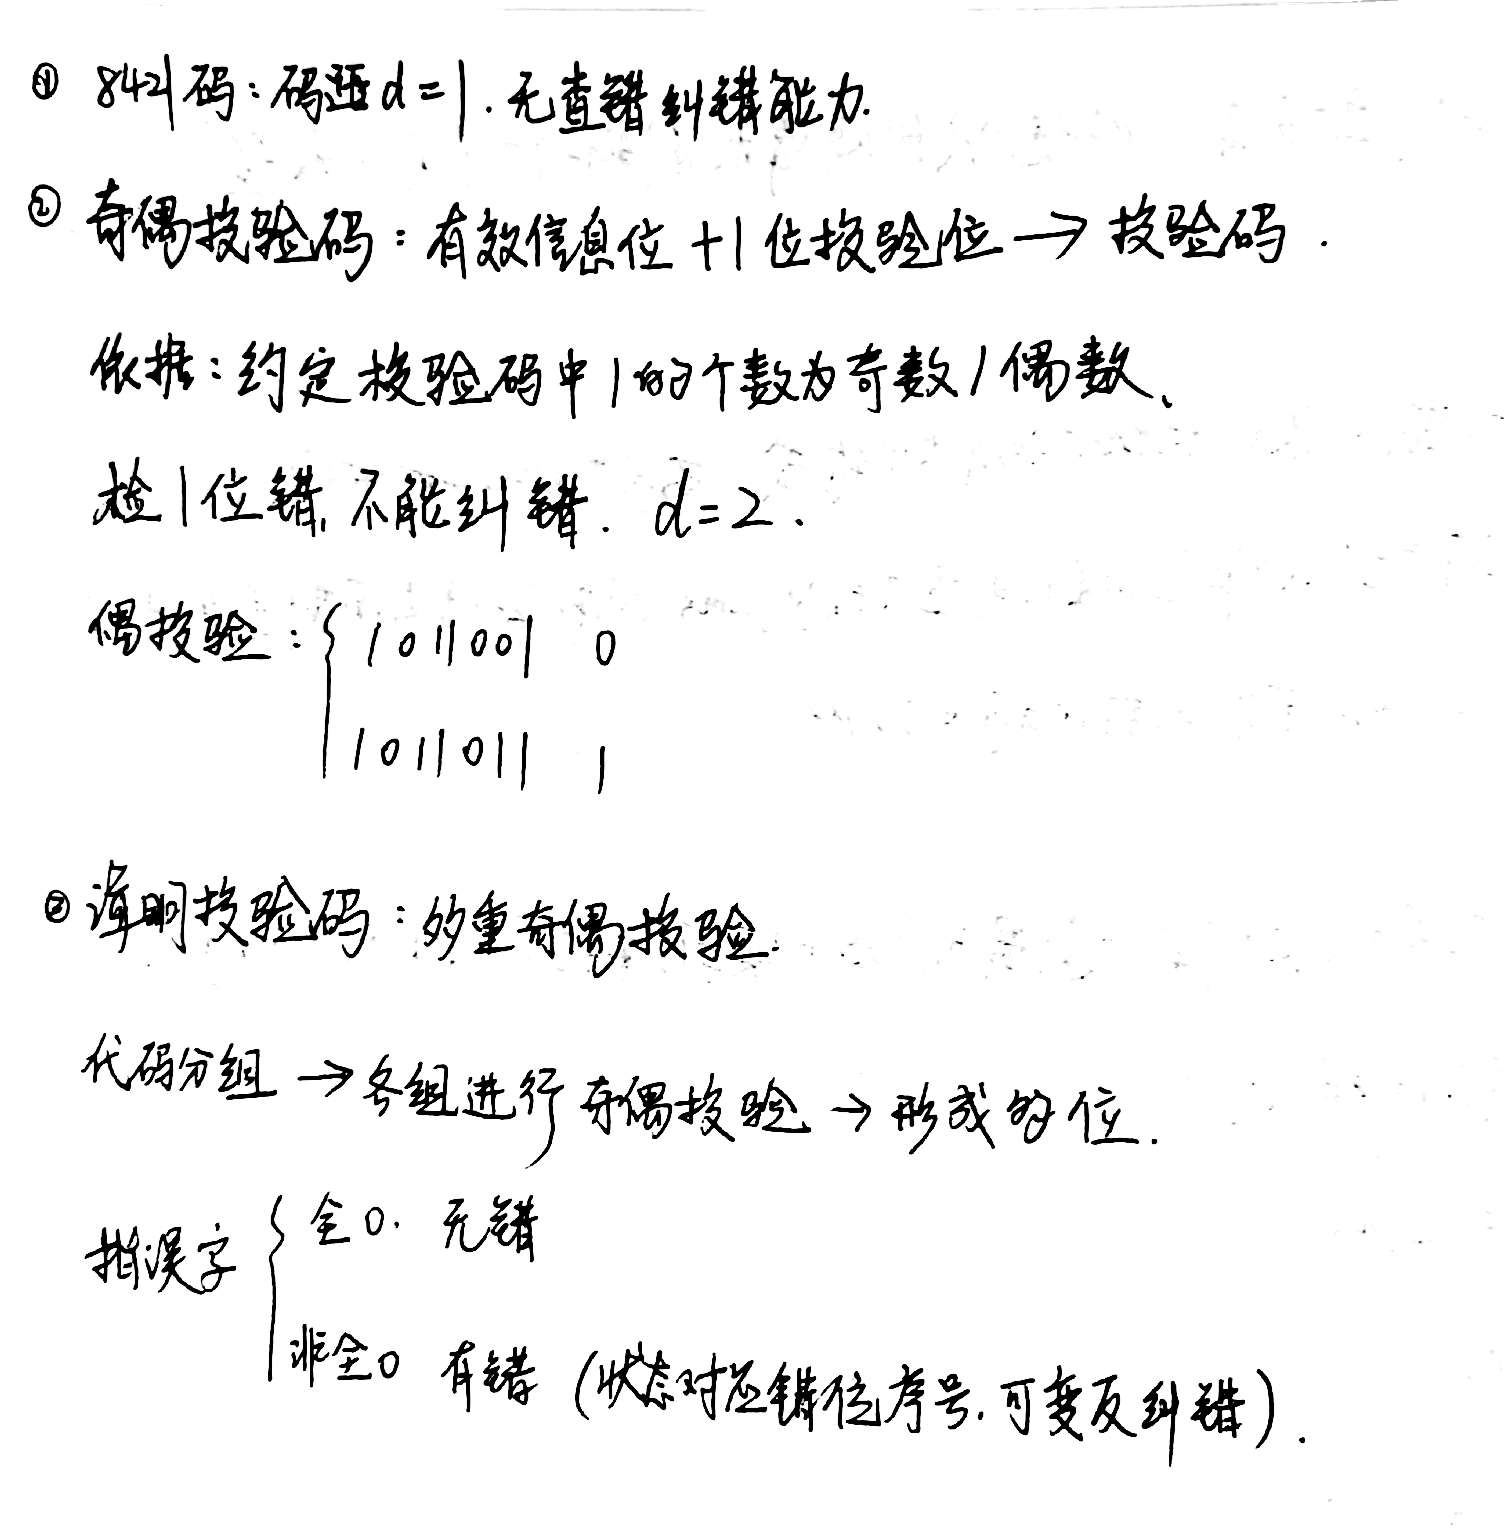 ① 8421码：码距d=1. 无查错纠错能力.
② 奇偶校验码：有效信息位+1位校验位→校验码.
依据：约定校验码中1的个数为奇数/偶数、
检1位错, 不能纠错. d=2.
偶校验：{ 1011001 0
1011011 1
③ 海明校验码：多重奇偶校验.
代码分组→各组进行奇偶校验→形成多位.
指误字 { 全0. 无错
非全0 有错 (状态对应错位序号.可变反纠错).